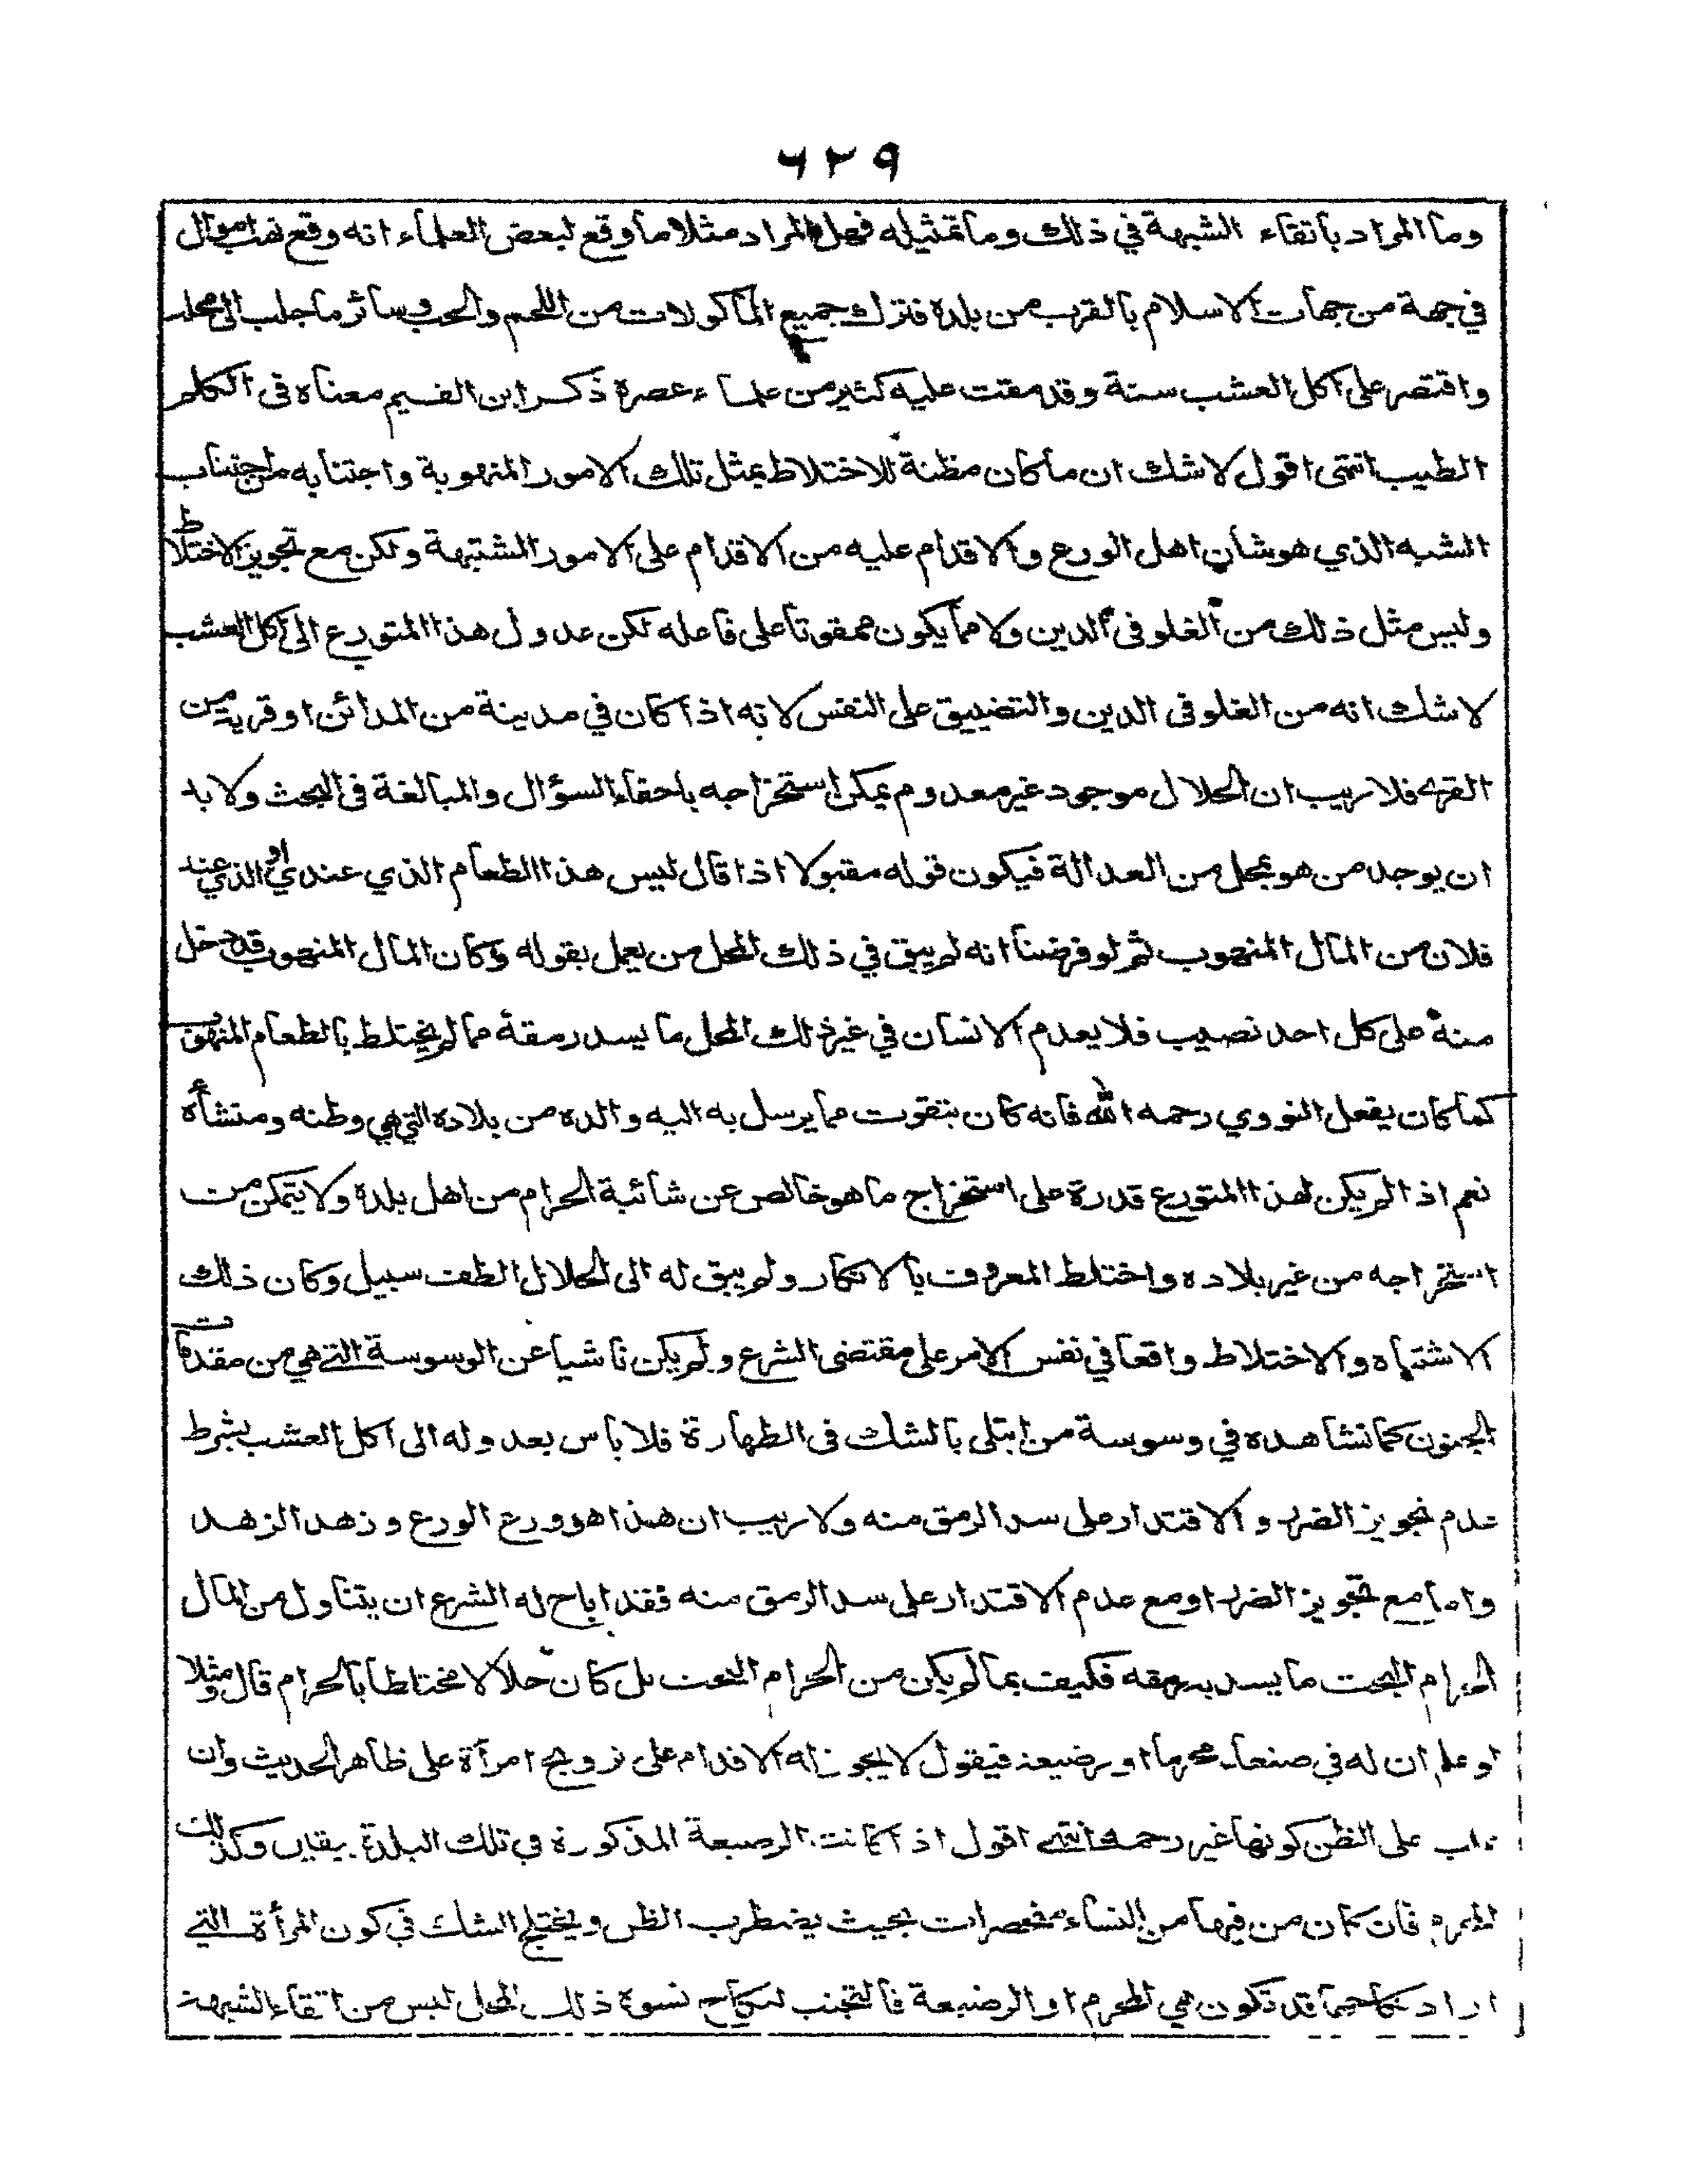 ٦٢٩
وما المراد باتقاء الشبهة في ذلك وما تمثيله فهل المراد مثلا ما وقع لبعض العلماء انه وقع نهب اموال
في جهة من جهات الاسلام بالقرب من بلده فترك جميع المأكولات من اللحم والحب وسائر ما جلب الى محله
واقتصر على اكل العشب سنة وقد مقت عليه كثير من علماء عصره ذكر ابن القيم معناه في الكلم
الطيب انتهى اقول لا شك ان ما كان مظنة للاختلاط بمثل تلك الامور المنهوبة واجتنابه من اجتناب
الشبه الذي هو شان اهل الورع والاقدام عليه من الاقدام على الامور المشتبهة ولكن مع تجويز الاختلاط
وليس مثل ذلك من الغلو في الدين ولا مما يكون ممقوتا على فاعله لكن عدول هذا المتورع الى اكل العشب
لا شك انه من الغلو في الدين والتضييق على النفس لانه اذا كان في مدينة من المدائن او قرية من
القرى فلا ريب ان الحلال موجود غير معدوم يمكن استخراجه باحفاء السؤال والمبالغة في البحث ولا بد
ان يوجد من هو بمحل من العدالة فيكون قوله مقبولا اذا قال ليس هذا الطعام الذي عندي او الذي عند
فلان من المال المنهوب ثم لو فرضنا انه لم يبق في ذلك المحل من يعمل بقوله وكان المال المنهوب قد دخل
منه على كل احد نصيب فلا يعدم الانسان في غير ذلك المحل ما يسد رمقه مما لم يختلط بالطعام المنهوب
كما كان يفعل النووي رحمه الله فانه كان يتقوت مما يرسل به اليه والده من بلاده التي هي وطنه ومنشأه
نعم اذا لم يكن لهذا المتورع قدرة على استخراج ما هو خالص عن شائبة الحرام من اهل بلده ولا يتمكن من
استخراجه من غير بلاده واختلط المعروف بالانكار ولم يبق له الى الحلال الطلق سبيل وكان ذلك
الاشتباه والاختلاط واقعا في نفس الامر على مقتضى الشرع ولم يكن ناشيا عن الوسوسة التي هي من مقدمات
الجنون كما نشاهده في وسوسة من ابتلى بالشك في الطهارة فلا باس بعدوله الى اكل العشب بشرط
عدم تجويز الضرر والاقتدار على سد الرمق منه ولا ريب ان هذا هو ورع الورع وزهد الزهد
واما مع تجويز الضرر او مع عدم الاقتدار على سد الرمق منه فقد اباح له الشرع ان يتناول من المال
الحرام البحت ما يسد به رمقه فكيف بما لم يكن من الحرام البحت بل كان حلالا مختلطا بالحرام قال ومثلا
لو علم ان له في صنعاء محرما او رضيعة فيقول لا يجوز له الاقدام على تزوج امرأة على ظاهر الحديث وان
على الظن كونها غير رحمه انتهى اقول اذا كانت الرضيعة المذكورة في تلك البلدة بيقين وكذلك
المحرم فان كان من فيها من النساء منحصرات بحيث يضطرب الظن ويختلج الشك في كون المرأة التي
اراد نكاحها قد تكون هي المحرم او الرضيعة فالتجنب لنكاح نسوة ذلك المحل ليس من اتقاء الشبهة